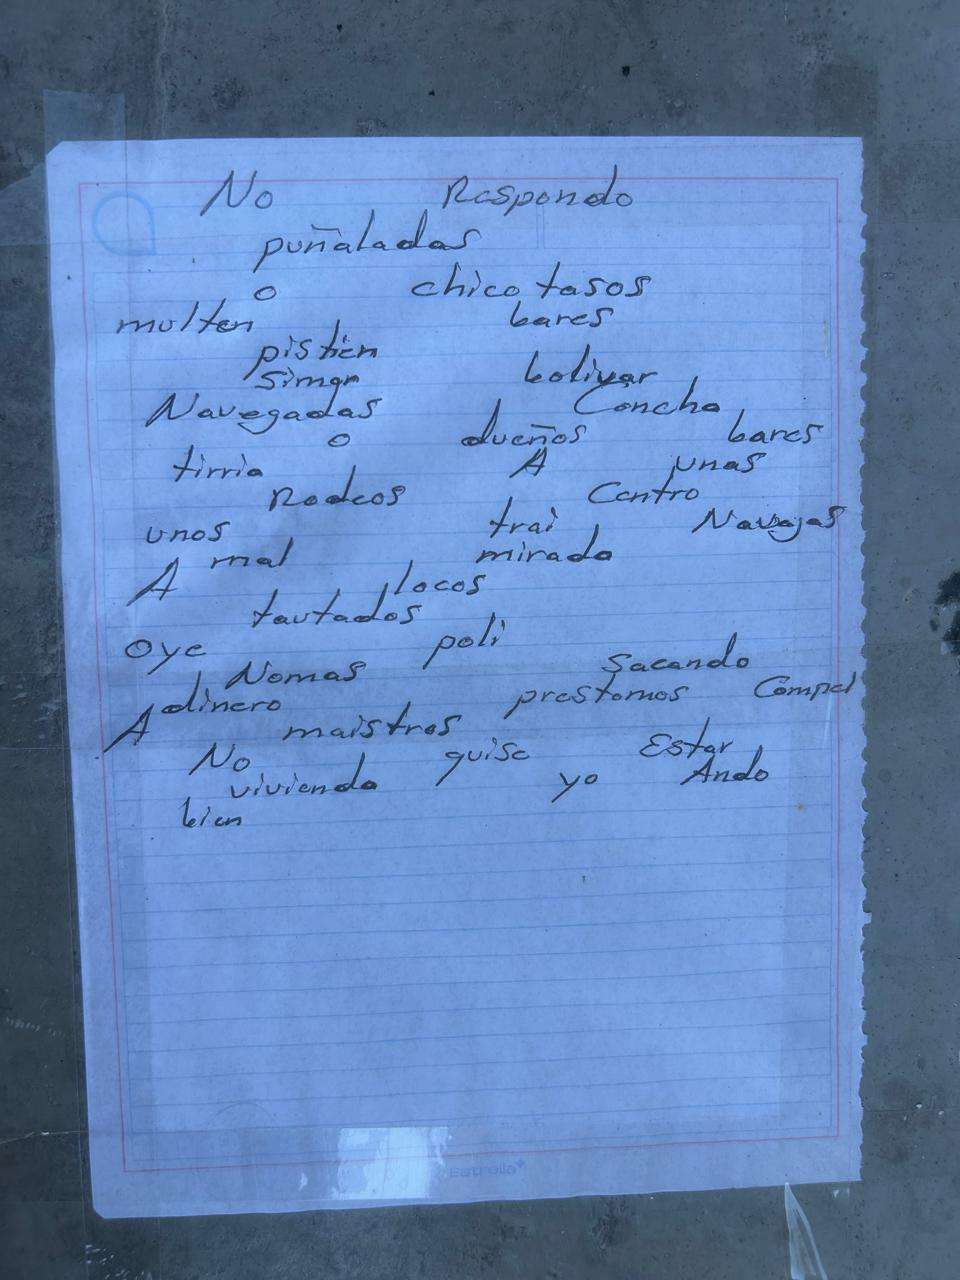 No Respondo
puñaladas
o chicotasos
multen bares
pistien
simon bolivar
Navegadas Concho
o dueños bares
tirria A unas
Rodeos Centro
unos trai Navajas
A mal mirado
locos
tautados
oye poli
Nomas Sacando
dinero prestomos Compel
A maistros
No quise Estar
viviendo yo Ando
bien
Estrella